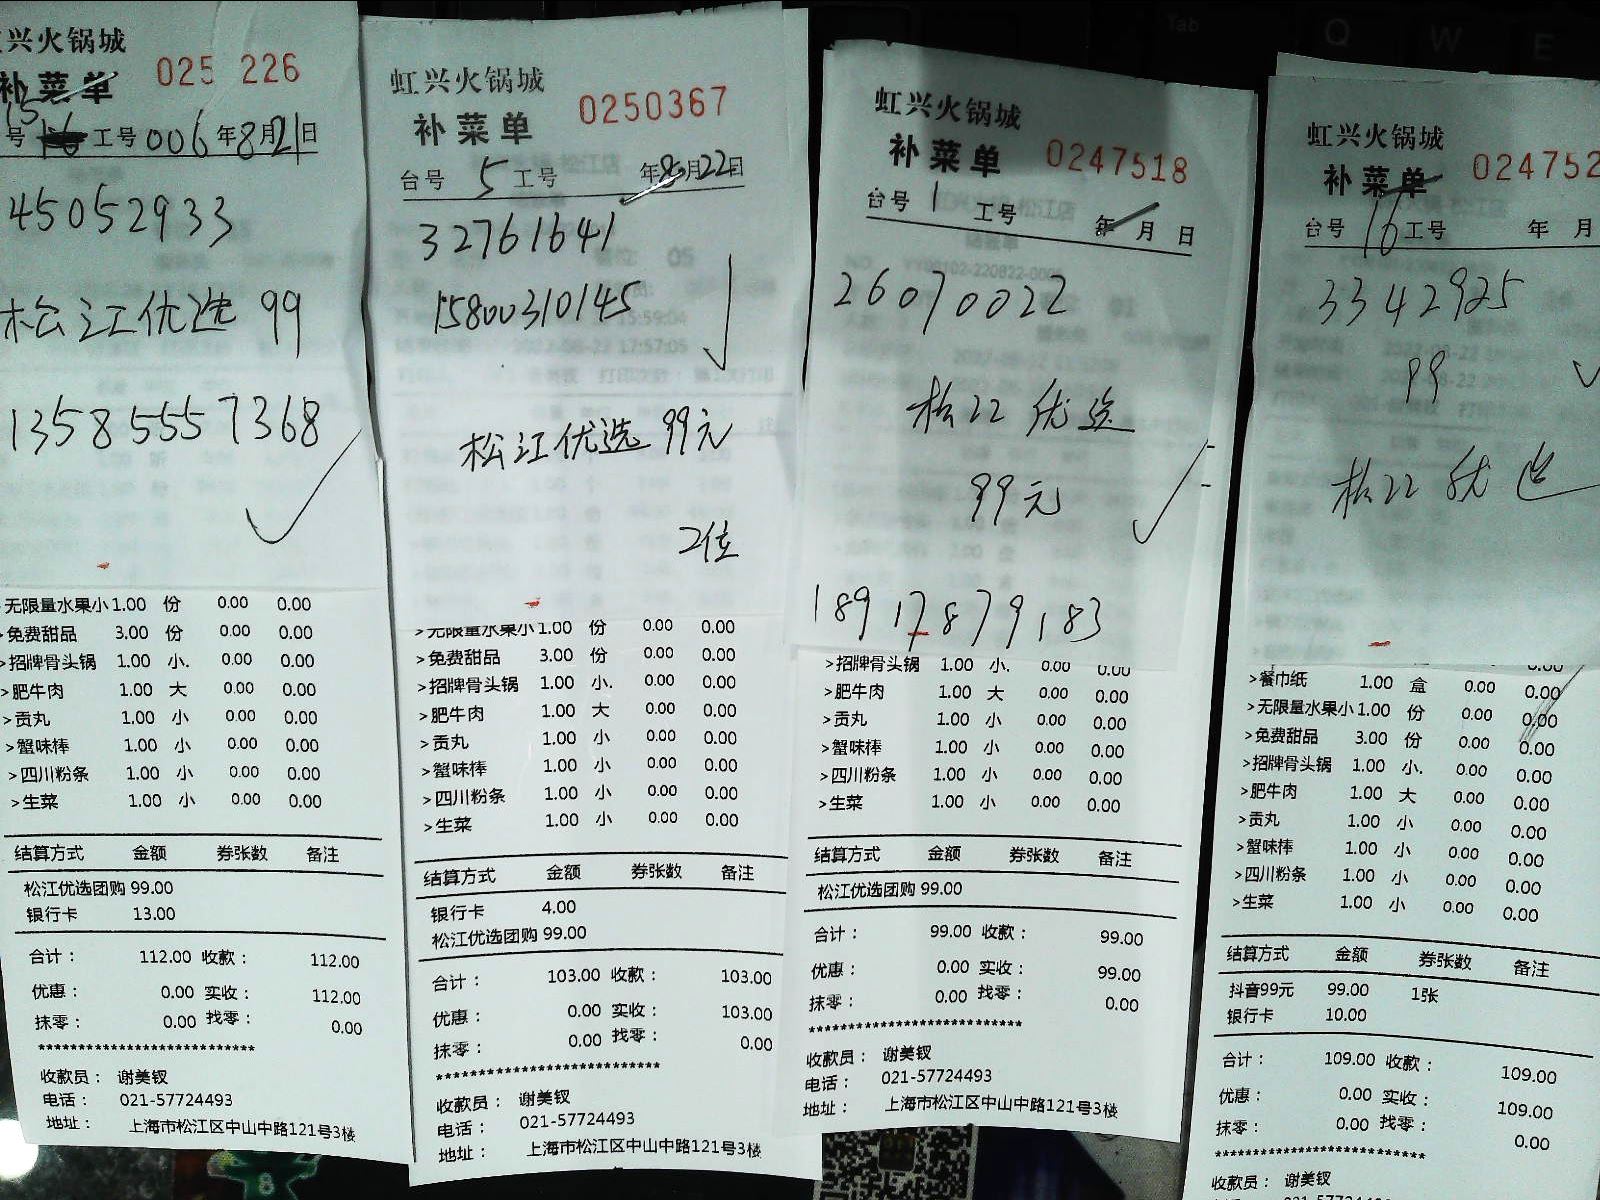 兴火锅城
补菜单 025 226
号 15 工号 006 年 8 月 21 日
45052933
松江优选 99
13585557368
>无限量水果小 1.00 份 0.00 0.00
>免费甜品 3.00 份 0.00 0.00
>招牌骨头锅 1.00 小. 0.00 0.00
>肥牛肉 1.00 大 0.00 0.00
>贡丸 1.00 小 0.00 0.00
>蟹味棒 1.00 小 0.00 0.00
>四川粉条 1.00 小 0.00 0.00
>生菜 1.00 小 0.00 0.00
结算方式 金额 券张数 备注
松江优选团购 99.00
银行卡 13.00
合计： 112.00 收款： 112.00
优惠： 0.00 实收： 112.00
抹零： 0.00 找零： 0.00
***************************
收款员： 谢美钗
电话： 021-57724493
地址： 上海市松江区中山中路121号3楼
虹兴火锅城
补菜单 0250367
台号 5 工号 年 8 月 22 日
32761641
15800310145
松江优选 99元
2位
>无限量水果小 1.00 份 0.00 0.00
>免费甜品 3.00 份 0.00 0.00
>招牌骨头锅 1.00 小. 0.00 0.00
>肥牛肉 1.00 大 0.00 0.00
>贡丸 1.00 小 0.00 0.00
>蟹味棒 1.00 小 0.00 0.00
>四川粉条 1.00 小 0.00 0.00
>生菜 1.00 小 0.00 0.00
结算方式 金额 券张数 备注
银行卡 4.00
松江优选团购 99.00
合计： 103.00 收款： 103.00
优惠： 0.00 实收： 103.00
抹零： 0.00 找零： 0.00
***************************
收款员： 谢美钗
电话： 021-57724493
地址： 上海市松江区中山中路121号3楼
虹兴火锅城
补菜单 0247518
台号 1 工号 年 月 日
26070022
松江优选
99元
18917879183
>招牌骨头锅 1.00 小. 0.00 0.00
>肥牛肉 1.00 大 0.00 0.00
>贡丸 1.00 小 0.00 0.00
>蟹味棒 1.00 小 0.00 0.00
>四川粉条 1.00 小 0.00 0.00
>生菜 1.00 小 0.00 0.00
结算方式 金额 券张数 备注
松江优选团购 99.00
合计： 99.00 收款： 99.00
优惠： 0.00 实收： 99.00
抹零： 0.00 找零： 0.00
***************************
收款员： 谢美钗
电话： 021-57724493
地址： 上海市松江区中山中路121号3楼
虹兴火锅城
补菜单 024752
台号 16 工号 年 月
3342925
99
松江优选
>餐巾纸 1.00 盒 0.00 0.00
>无限量水果小 1.00 份 0.00 0.00
>免费甜品 3.00 份 0.00 0.00
>招牌骨头锅 1.00 小. 0.00 0.00
>肥牛肉 1.00 大 0.00 0.00
>贡丸 1.00 小 0.00 0.00
>蟹味棒 1.00 小 0.00 0.00
>四川粉条 1.00 小 0.00 0.00
>生菜 1.00 小 0.00 0.00
结算方式 金额 券张数 备注
抖音99元 99.00 1张
银行卡 10.00
合计： 109.00 收款： 109.00
优惠： 0.00 实收： 109.00
抹零： 0.00 找零： 0.00
***************************
收款员： 谢美钗